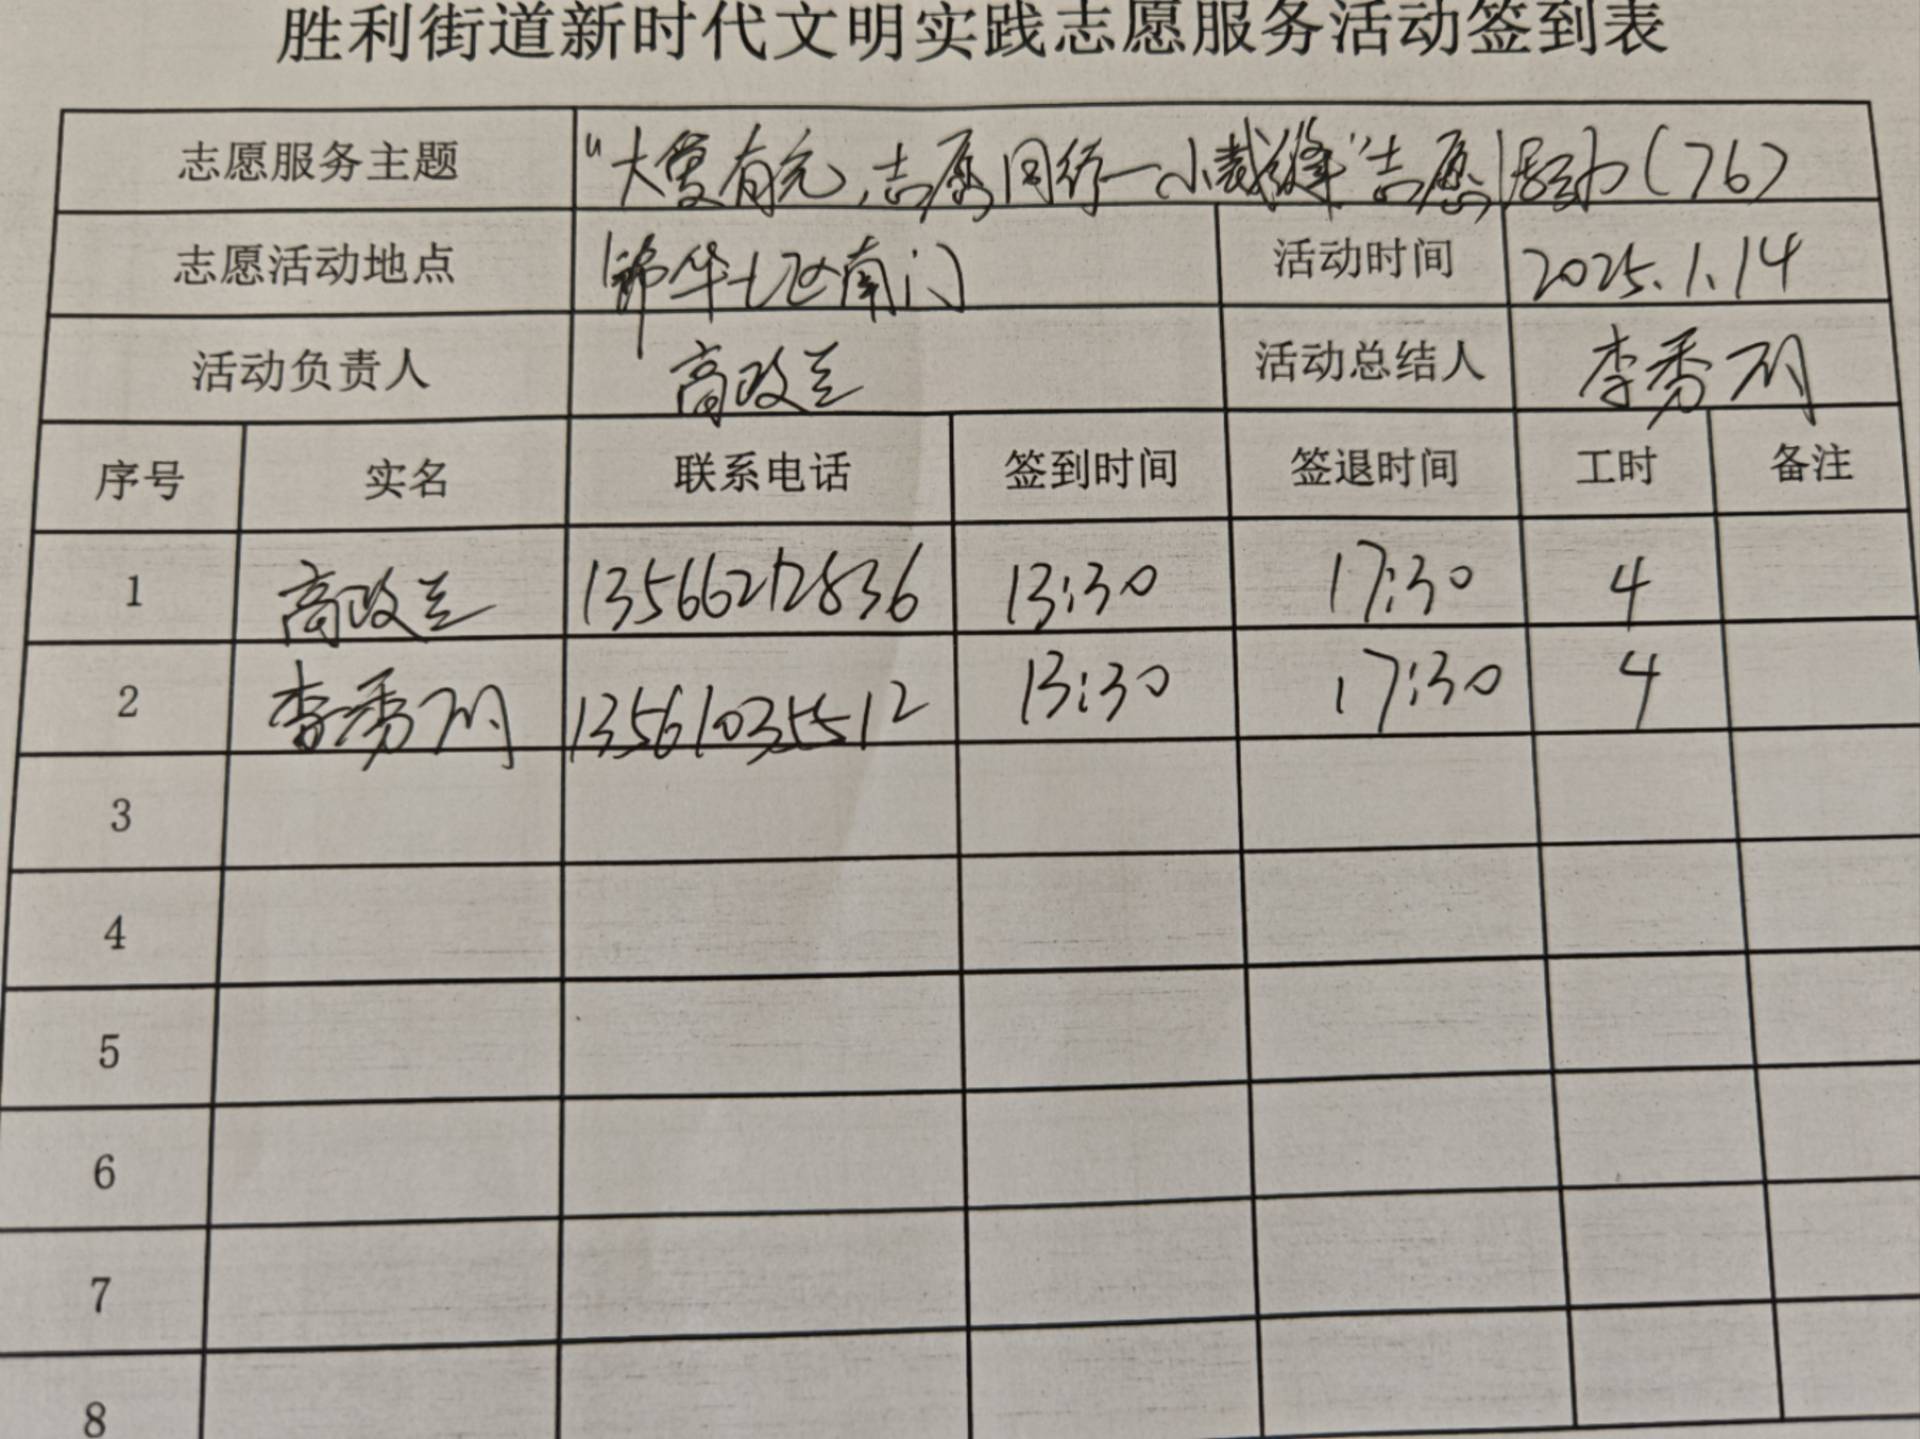 胜利街道新时代文明实践志愿服务活动签到表
志愿服务主题 “大爱有光,志愿同行—小裁缝”志愿活动(76)
志愿活动地点 锦华七区南门 活动时间 2025.1.14
活动负责人 高政兰 活动总结人 李秀
序号 实名 联系电话 签到时间 签退时间 工时 备注
1 高政兰 13566212836 13:30 17:30 4
2 李秀 13561035512 13:30 17:30 4
3
4
5
6
7
8